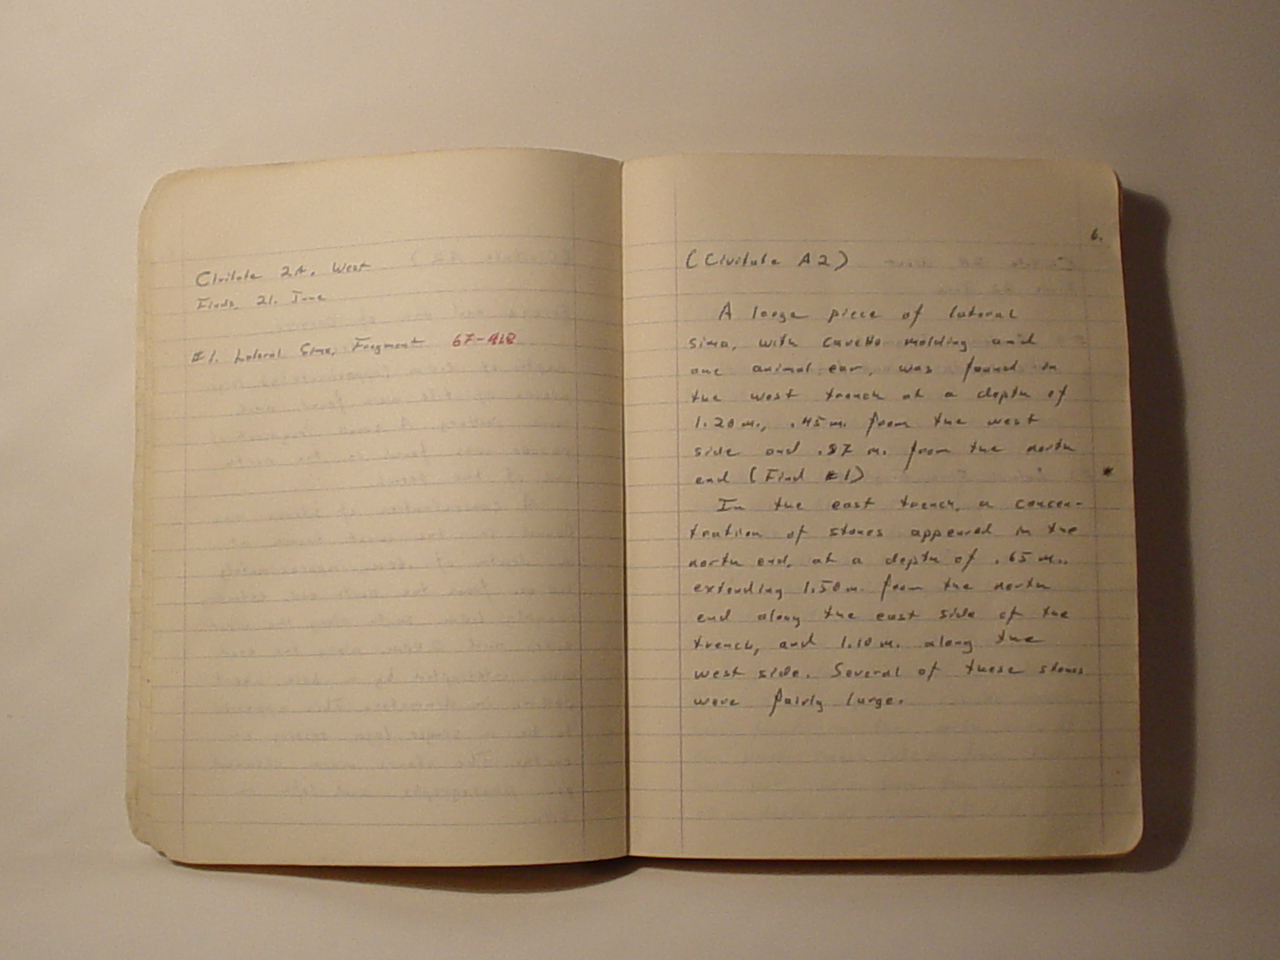 Civitate 2A. West
Finds, 21. June
#1. Lateral Sima, Fragment 67-418
6.
(Civitate A2)
A large piece of lateral
sima, with cavetto molding and
one animal ear, was found in
the west trench at a depth of
1.20 m., .45 m. from the west
side and .87 m. from the north
end (Find #1)
*
In the east trench, a concen-
tration of stones appeared in the
north end, at a depth of .65 m..
extending 1.50 m. from the north
end along the east side of the
trench, and 1.10 m. along the
west side. Several of these stones
were fairly large.